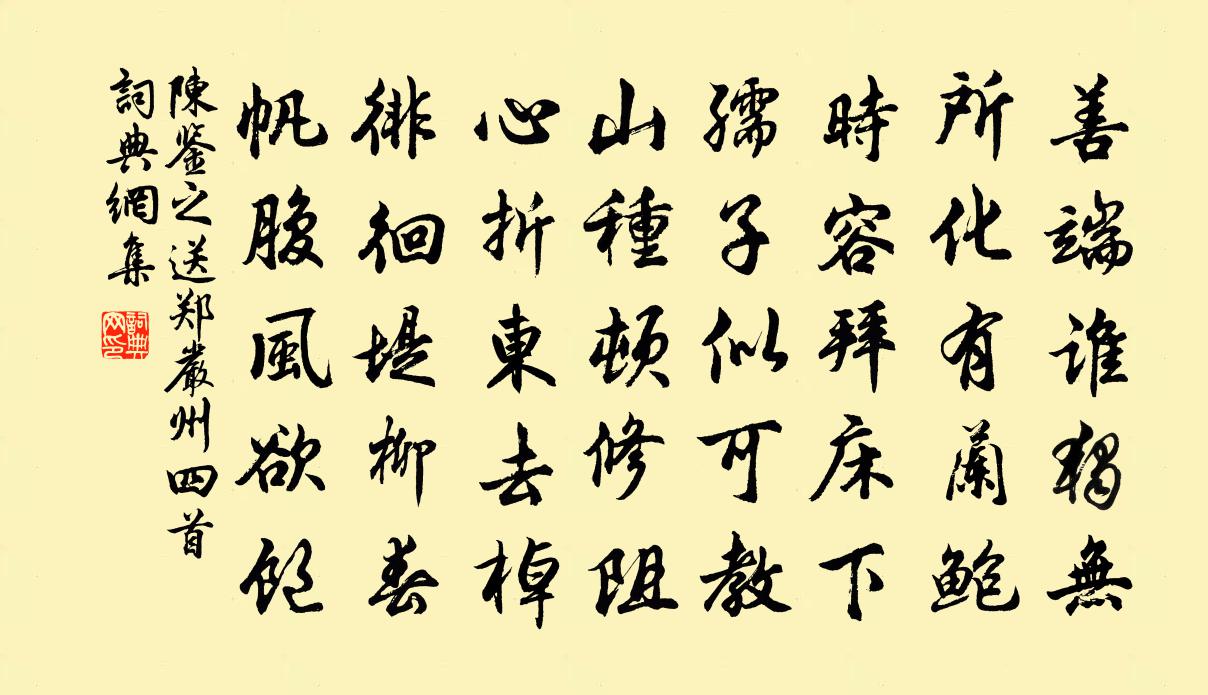 善端谁獨無
所化有蘭鮑
時容拜床下
孺子似可教
山種頓修阻
心折東去棹
徘徊堤柳春
帆腹風欲飽
陳鉴之送郑嚴州四首
詞典網集
詞典网印